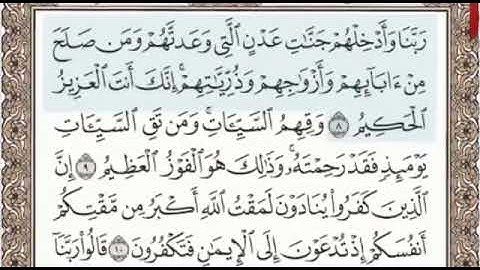 رَبَّنَا وَأَدْخِلْهُمْ جَنَّاتِ عَدْنٍ ٱلَّتِي وَعَدتَّهُمْ وَمَن صَلَحَ
مِنْ ءَابَآئِهِمْ وَأَزْوَاجِهِمْ وَذُرِّيَّاتِهِمْ إِنَّكَ أَنتَ ٱلْعَزِيزُ
ٱلْحَكِيمُ ٨ وَقِهِمُ ٱلسَّيِّـَٔاتِ وَمَن تَقِ ٱلسَّيِّـَٔاتِ
يَوْمَئِذٍ فَقَدْ رَحِمْتَهُۥ وَذَٰلِكَ هُوَ ٱلْفَوْزُ ٱلْعَظِيمُ ٩ إِنَّ
ٱلَّذِينَ كَفَرُوا۟ يُنَادَوْنَ لَمَقْتُ ٱللَّهِ أَكْبَرُ مِن مَّقْتِكُمْ
أَنفُسَكُمْ إِذْ تُدْعَوْنَ إِلَى ٱلْإِيمَٰنِ فَتَكْفُرُونَ ١٠ قَالُوا۟ رَبَّنَآ